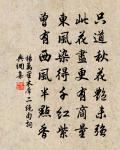 只道秋花艷未強
此花盡更有商量
東風染得千紅紫
曾有西風半點香
楊萬里木犀二絕句